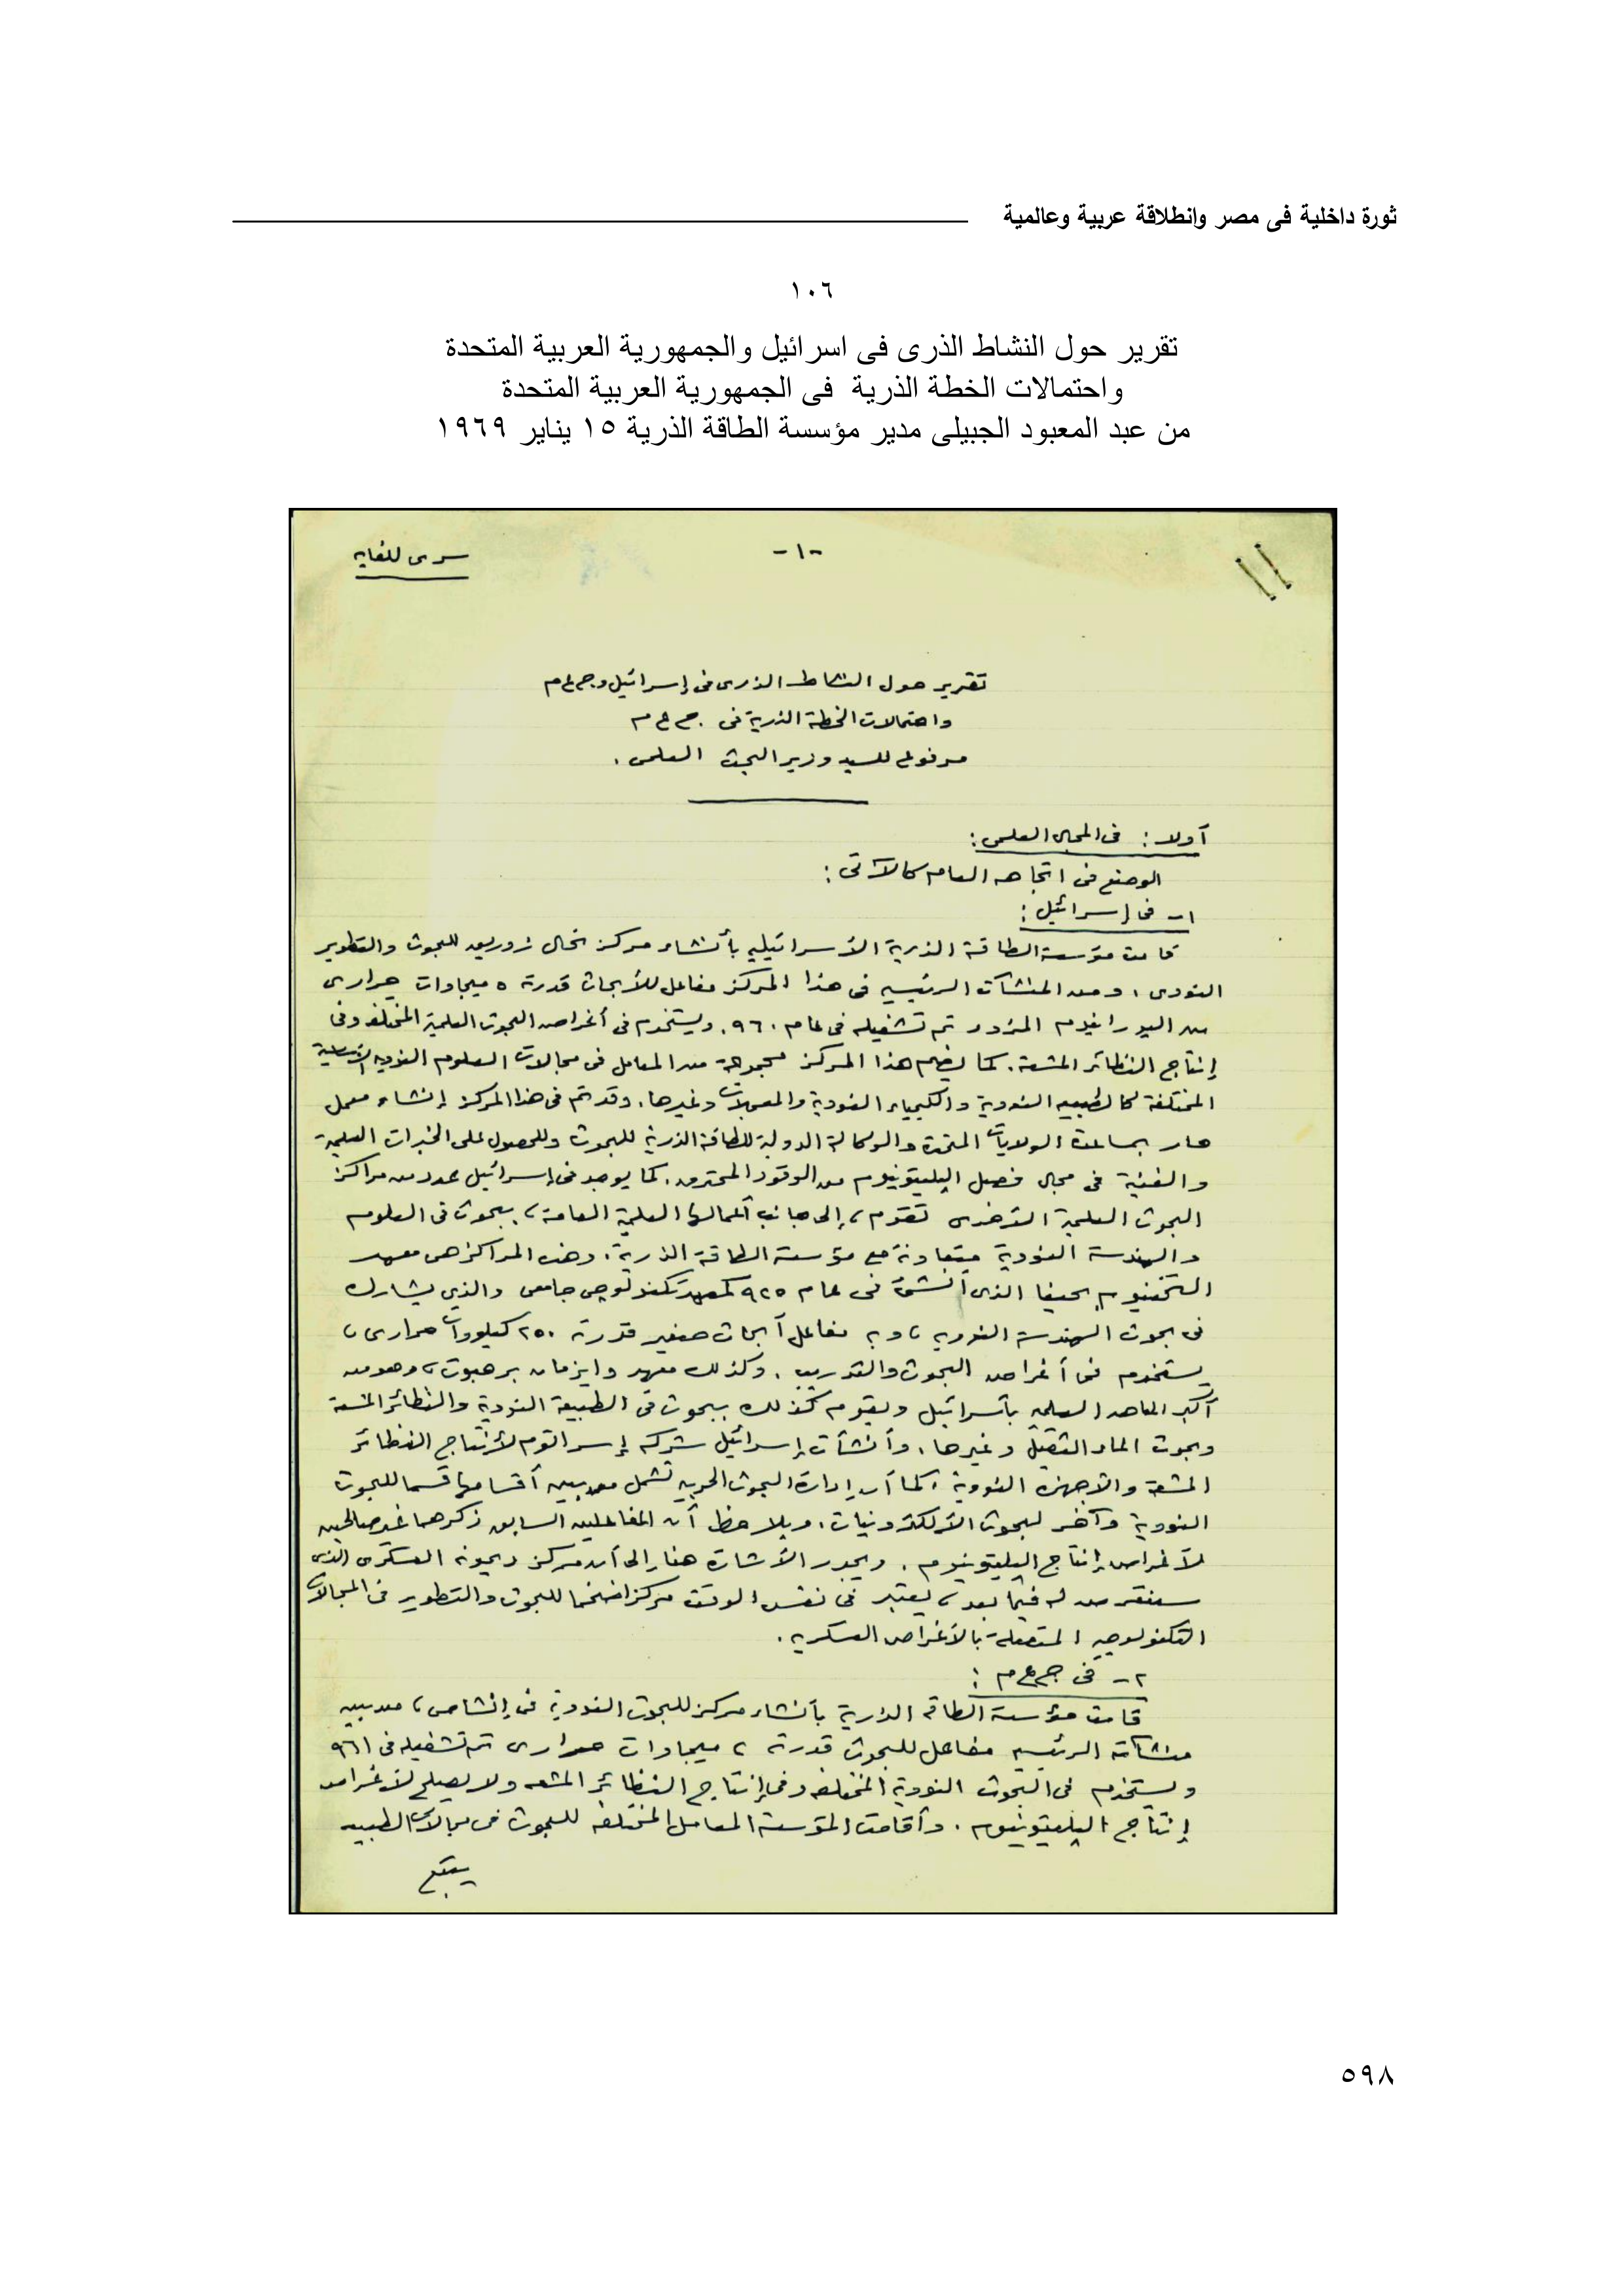 ثورة داخلية فى مصر وانطلاقة عربية وعالمية
١٠٦
تقرير حول النشاط الذرى فى اسرائيل والجمهورية العربية المتحدة
واحتمالات الخطة الذرية فى الجمهورية العربية المتحدة
من عبد المعبود الجبيلى مدير مؤسسة الطاقة الذرية ١٥ يناير ١٩٦٩
سرى للغاية
-١-
تقرير حول النشاط الذرى فى إسرائيل و ج ع م
واحتمالات الخطة الذرية فى ج ع م
مرفوع للسيد وزير البحث العلمى .
أولا : فى المجال العلمى :
الوضع فى اتجاهه العام كالآتى :
١- فى إسرائيل :
قامت مؤسسة الطاقة الذرية الأسرائيلية بأنشاء مركز نحال زوريق للبحوث والتطوير
النووى ، ومن المنشآت الرئيسية فى هذا المركز مفاعل للأبحاث قدرته ٥ ميجاوات حرارى
من اليورانيوم المزود تم تشغيله فى عام ٩٦٠ . ويستخدم فى أغراض البحوث العلمية المختلفة وفى
إنتاج النظائر المشعة . كما يضم هذا المركز مجموعة من المعامل فى مجالات العلوم النووية الأساسية
المختلفة كالطبيعة النووية والكيمياء النووية والمعجلات وغيرها . وقد تم فى هذا المركز إنشاء معمل
حار بمساعدة الولايات المتحدة والوكالة الدولية للطاقة الذرية للبحوث وللحصول على الخبرات العلمية
والفنية فى مجال فصل البليتونيوم من الوقود المحترق . كما يوجد فى إسرائيل عدد من مراكز
البحوث العلمية الأخرى تقوم ، إلى جانب أعمالها العلمية العامة ، ببحوث فى العلوم
والهندسة النووية متعاونة مع مؤسسة الطاقة الذرية . وهذه المراكز هى معهد
التخنيوم بحيفا الذى أنشئ فى عام ٩٢٥ كمعهد تكنولوجى جامعى والذى يشارك
فى بحوث الهندسة النووية وبه مفاعل أبحاث صغير قدرته ٢٥٠ كيلووات حرارى ،
يستخدم فى أغراض البحوث والتدريب . وكذلك معهد وايزمان برحبوت ، وهو من
أكبر المعاهد العلمية بأسرائيل ويقوم كذلك ببحوث فى الطبيعة النووية والنظائر المشعة
وبحوث الماء الثقيل وغيرها . وأنشأت إسرائيل شركة إسراتوم لأنتاج النظائر
المشعة والأجهزة النووية . كما أن إدارة البحوث الحربية تشمل من بين أقسامها قسما للبحوث
النووية وآخر لبحوث الألكترونيات . ويلاحظ أن المفاعلين السابق ذكرهما غير صالحين
لأغراض إنتاج البليتونيوم . ويجدر الأشارة هنا إلى أن مركز ديمونه العسكرى الذى
سنتعرض له فيما بعد ، يعتبر فى نفس الوقت مركزا ضخما للبحوث والتطوير فى المجالات
التكنولوجية المتصلة بالأغراض العسكرية .
٢- فى ج ع م :
قامت مؤسسة الطاقة الذرية بأنشاء مركز للبحوث النووية فى إنشاص ، من بين
منشآته الرئيسية مفاعل للبحوث قدرته ٢ ميجاوات حرارى تم تشغيله فى ٩٦١
ويستخدم فى البحوث النووية المختلفة وفى إنتاج النظائر المشعة ولا يصلح لأغراض
إنتاج البليتونيوم . وأقامت المؤسسة المعامل المختلفة للبحوث فى مجالات الطبيعة
يتبع
٥٩٨